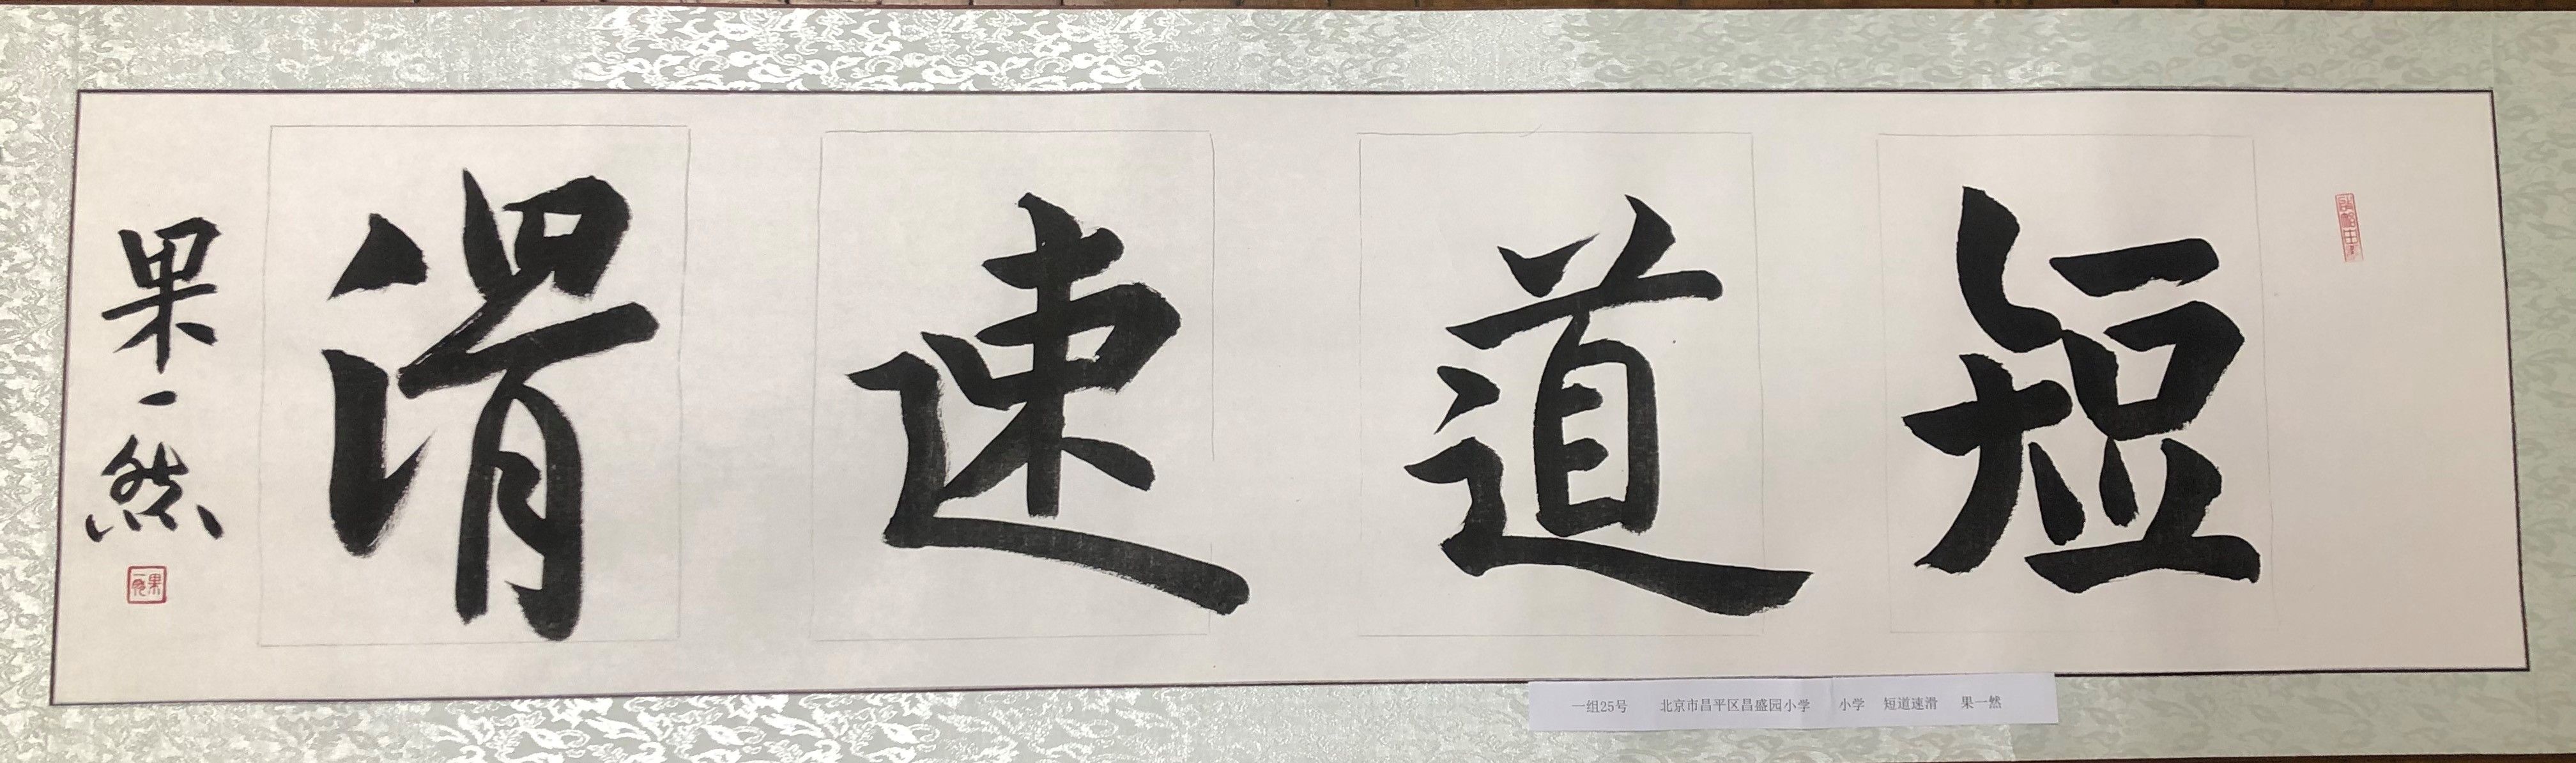 短道速滑
果一然
果一然
一组25号 北京市昌平区昌盛园小学 小学 短道速滑 果一然